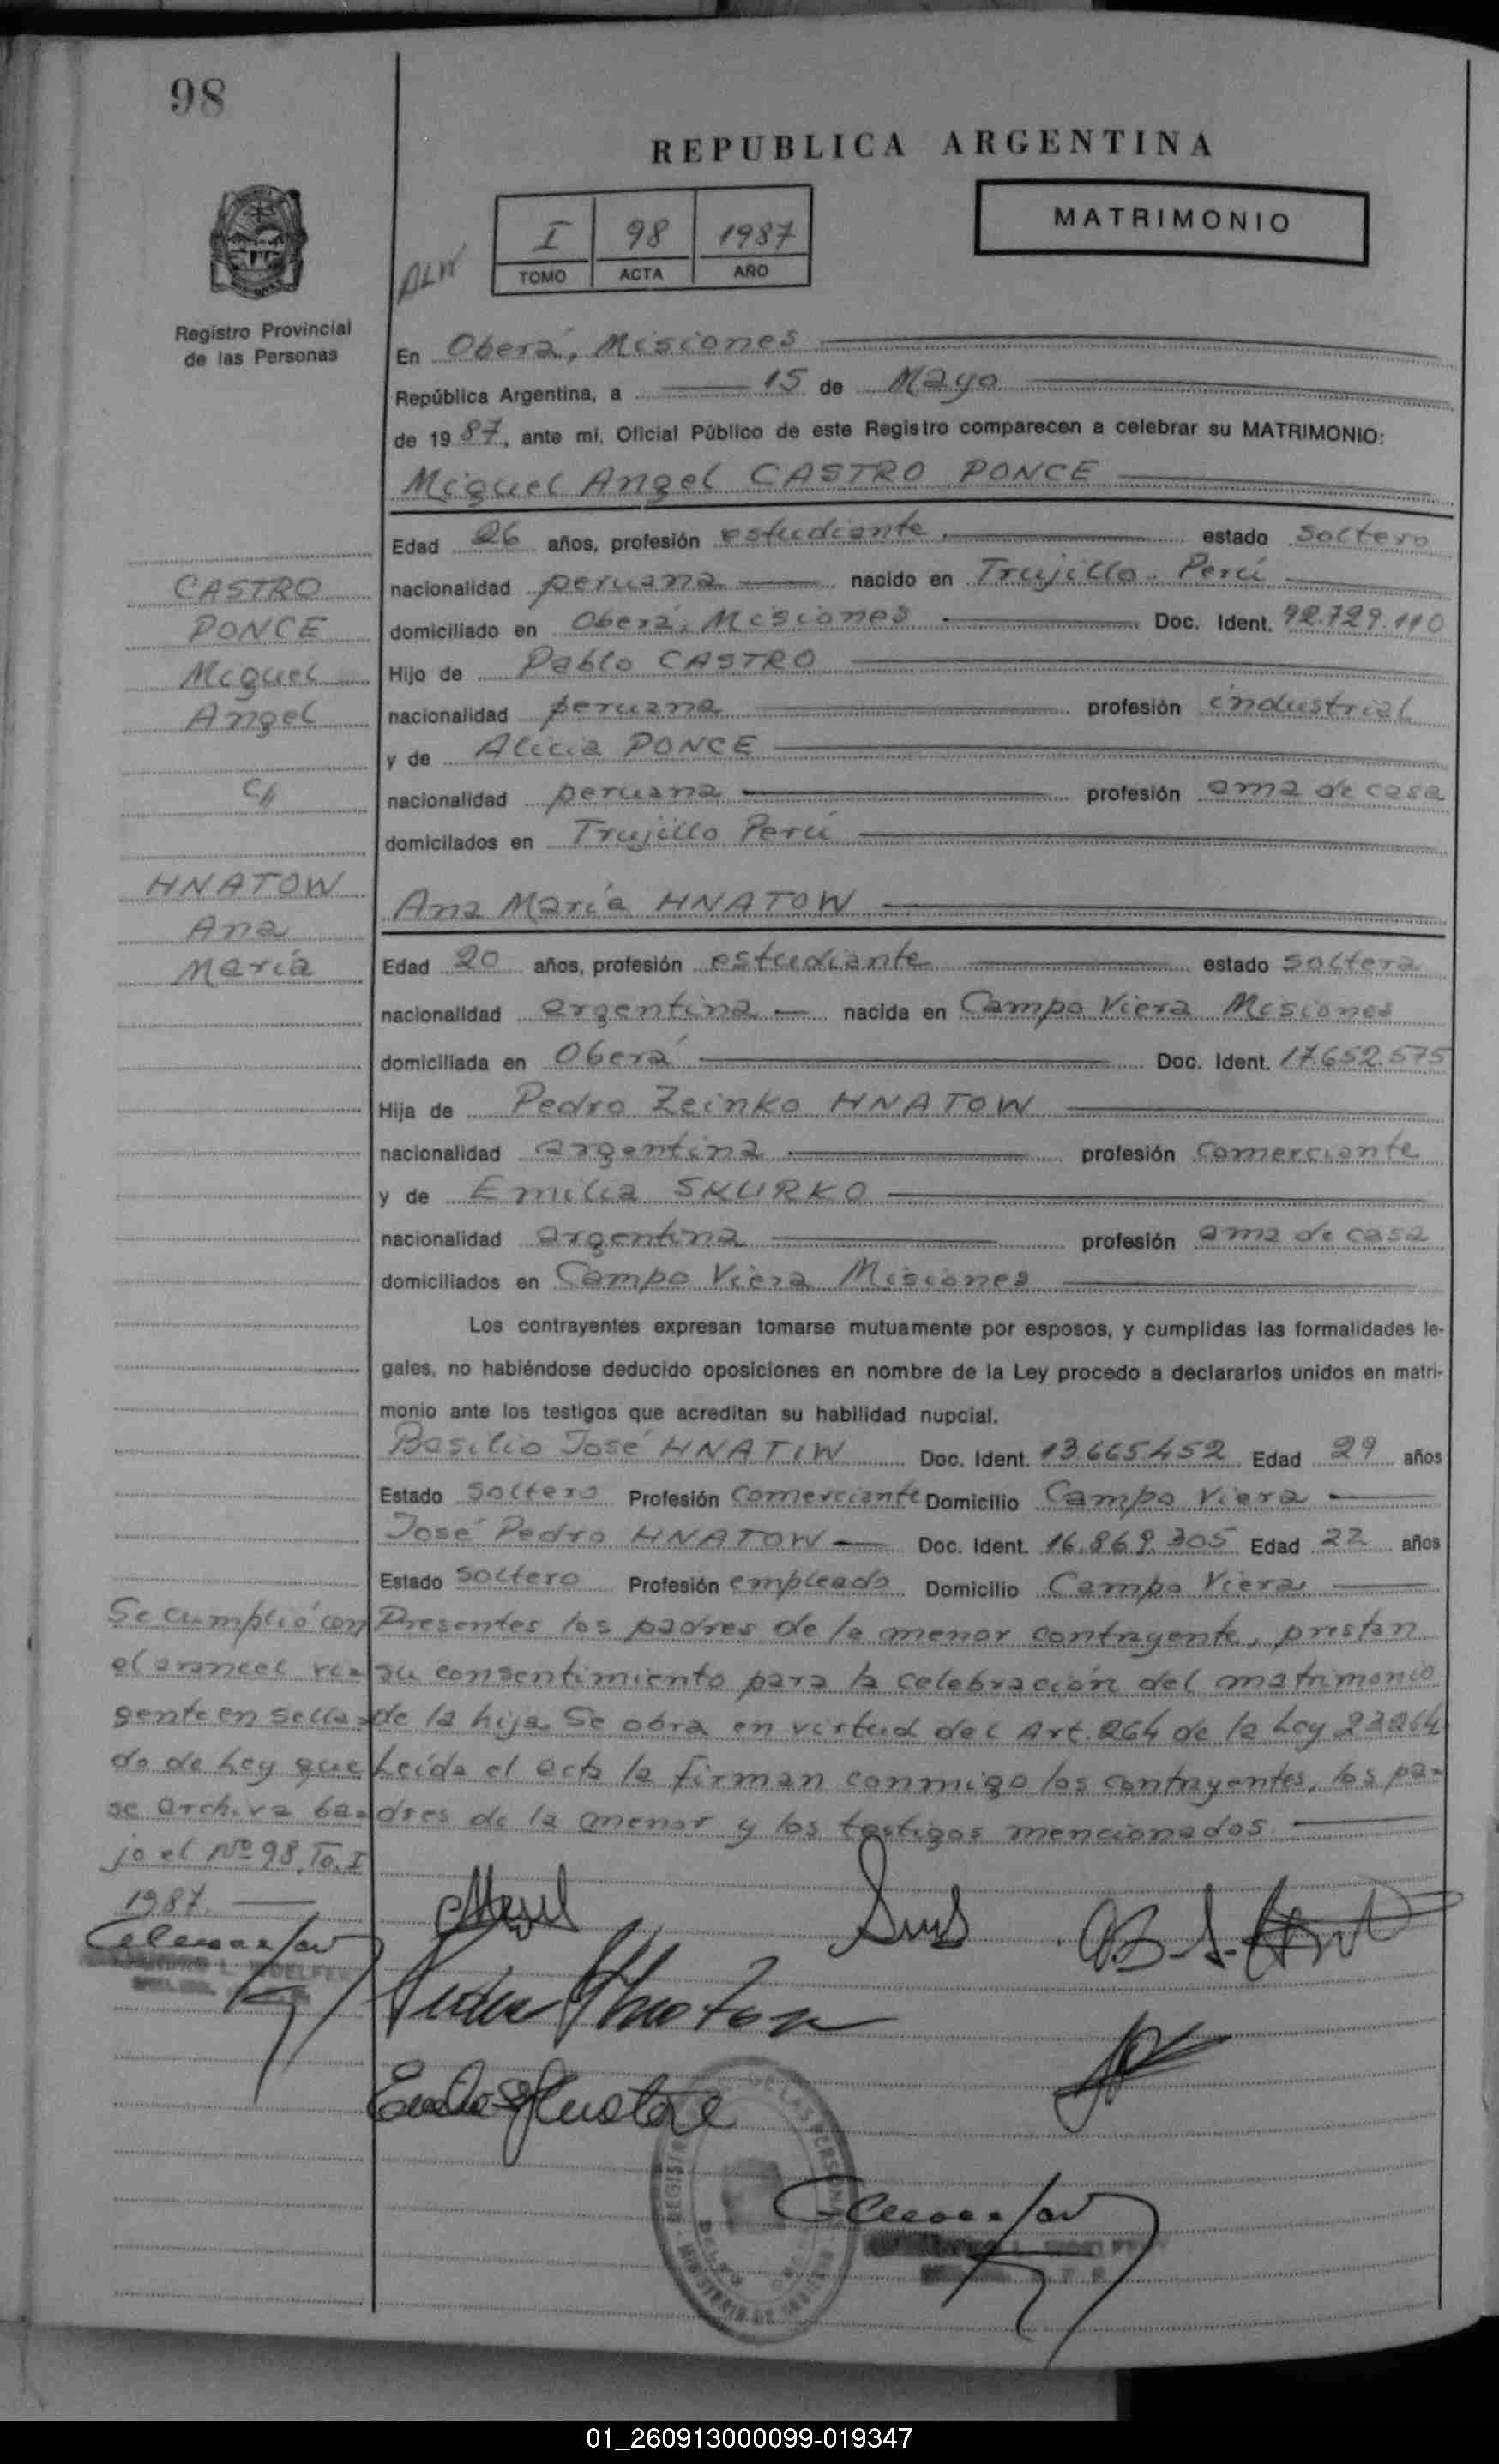 98
REPUBLICA ARGENTINA
I 98 1987
TOMO ACTA AÑO
MATRIMONIO
Registro Provincial
de las Personas
En Oberá, Misiones
República Argentina, a 15 de Mayo
de 1987, ante mi, Oficial Público de este Registro comparecen a celebrar su MATRIMONIO:
Miguel Angel CASTRO PONCE
Edad 26 años, profesión estudiante estado soltero
nacionalidad peruana nacido en Trujillo. Perú
domiciliado en Oberá, Misiones Doc. Ident. 92.729.110
Hijo de Pablo CASTRO
nacionalidad peruana profesión industrial
y de Alicia PONCE
nacionalidad peruana profesión ama de casa
domicilados en Trujillo Perú
CASTRO
PONCE
Miguel
Angel
c//
HNATOW
Ana
María
Ana María HNATOW
Edad 20 años, profesión estudiante estado soltera
nacionalidad argentina nacida en Campo Viera Misiones
domiciliada en Oberá Doc. Ident. 17.652.575
Hija de Pedro Zeinko HNATOW
nacionalidad argentina profesión comerciante
y de Emilia SKURKO
nacionalidad argentina profesión ama de casa
domiciliados en Campo Viera Misiones
Los contrayentes expresan tomarse mutuamente por esposos, y cumplidas las formalidades le-
gales, no habiéndose deducido oposiciones en nombre de la Ley procedo a declararlos unidos en matri-
monio ante los testigos que acreditan su habilidad nupcial.
Basilio José HNATIW Doc. Ident. 13.665.452 Edad 29 años
Estado soltero Profesión comerciante Domicilio Campo Viera
José Pedro HNATOW Doc. Ident. 16.869.305 Edad 22 años
Estado soltero Profesión empleado Domicilio Campo Viera
Presentes los padres de la menor contrayente, prestan
su consentimiento para la celebración del matrimonio
de la hija. Se obra en virtud del Art. 264 de la Ley 23264
Leída el acta la firman conmigo los contrayentes, los pa-
dres de la menor y los testigos mencionados
Se cumplió con
el arancel vi-
gente en sella-
do de Ley que
se archiva ba-
jo el Nº 98 To. I
1987.
REGISTRO DE LAS PERSONAS
01_260913000099-019347